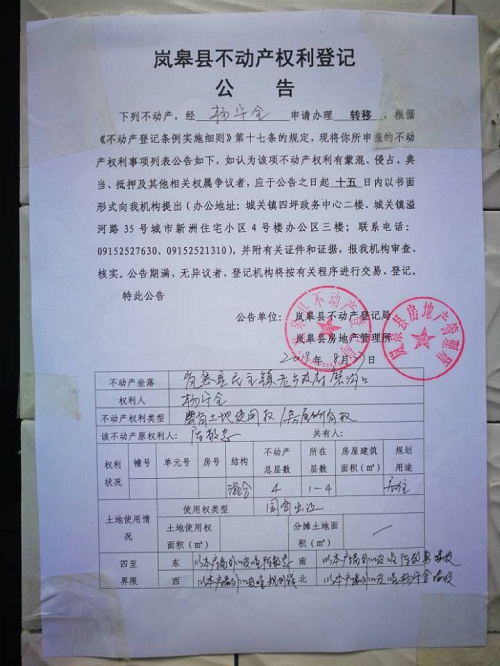 岚皋县不动产权利登记
公 告
下列不动产，经 杨守全 申请办理 转移，根据
《不动产登记条例实施细则》第十七条的规定，现将你所申报的不动
产权利事项列表公告如下，如认为该项不动产权利有蒙混、侵占、典
当、抵押及其他相关权属争议者，应于公告之日起 十五 日内以书面
形式向我机构提出（办公地址：城关镇四坪政务中心二楼、城关镇滋
河路 35 号城市新洲住宅小区 4 号楼办公区三楼；联系电话：
09152527630、09152521310），并附有关证件和证据，报我机构审查、
核实。公告期满，无异议者，登记机构将按有关程序进行交易、登记。
特此公告
公告单位：岚皋县不动产登记局
岚皋县房地产管理所
年 8 月 日
不动产坐落 岚皋县民主镇
权利人 杨守全
不动产权利类型 国有土地使用权/房屋所有权
该不动产原权利人：陈 共有人：
权利状况 幢号 单元号 房号 结构 不动产总层数 所在层数 房屋建筑面积（㎡） 规划用途
混合 4 1-4 居住
土地使用情况 使用权类型 国有出让
土地使用权面积（㎡） 分摊土地面积（㎡）
四至界限 东 以本户墙外 南 以本户墙外
西 以本户墙外 北 以本户墙外
岚皋县不动产登记局
岚皋县房地产管理所